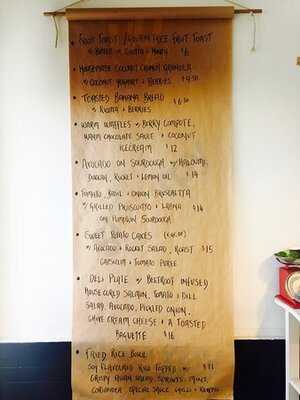 FRUIT TOAST / GLUTEN FREE FRUIT TOAST
w BUTTER or RICOTTA + HONEY $6
HOUSEMADE COCONUT CRUNCH GRANOLA
w COCONUT YOGHURT + BERRIES $9.50
TOASTED BANANA BREAD $6.50
w RICOTTA + BERRIES
WARM WAFFLES w BERRY COMPOTE,
WARM CHOCOLATE SAUCE + COCONUT
ICECREAM $12
AVOCADO ON SOURDOUGH w HALOUMI,
DUKKAH, ROCKET + LEMON OIL $14
TOMATO, BASIL + ONION BRUSCHETTA
w GRILLED PROSCIUTTO + LABNA $14
ON PUMPKIN SOURDOUGH
SWEET POTATO CAKES
w AVOCADO + ROCKET SALAD, ROAST $15
CAPSICUM + TOMATO PUREE
DELI PLATE w BEETROOT INFUSED
HOUSE CURED SALMON, TOMATO + DILL
SALAD, AVOCADO, PICKLED ONION,
CHIVE CREAM CHEESE + A TOASTED
BAGUETTE $16
FRIED RICE BOWL
SOY FLAVOURED RICE TOPPED w
CRISPY ASIAN SALAD, SPROUTS, MINT,
CORIANDER, SPECIAL SAUCE